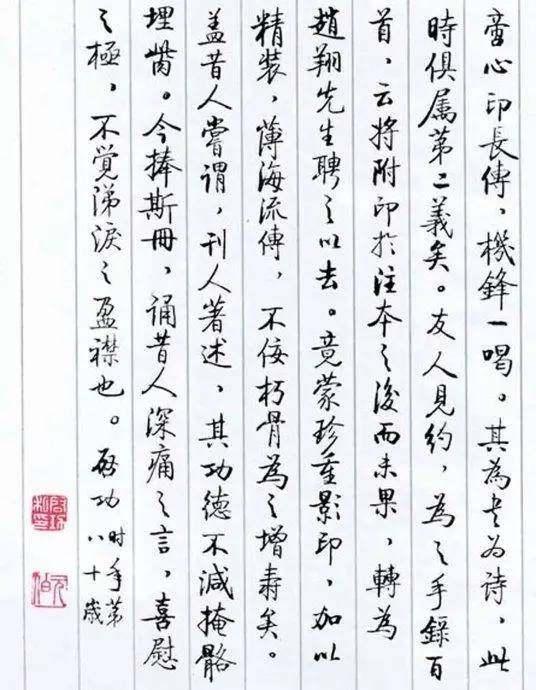 壺心印長傳，機鋒一喝。其為書為詩，此
時俱属第二義矣。友人見約，為之手錄百
首，云將附印於注本之後而未果，轉為
趙翔先生聘之以去。竟蒙珍重影印，加以
精裝，薄海流傳，不佞朽骨為之增壽矣。
盖昔人嘗謂，刊人著述，其功德不減掩骼
埋胔。今捧斯冊，誦昔人深痛之言，喜慰
之極，不覚涕淚之盈襟也。啟功
時年第
八十歲